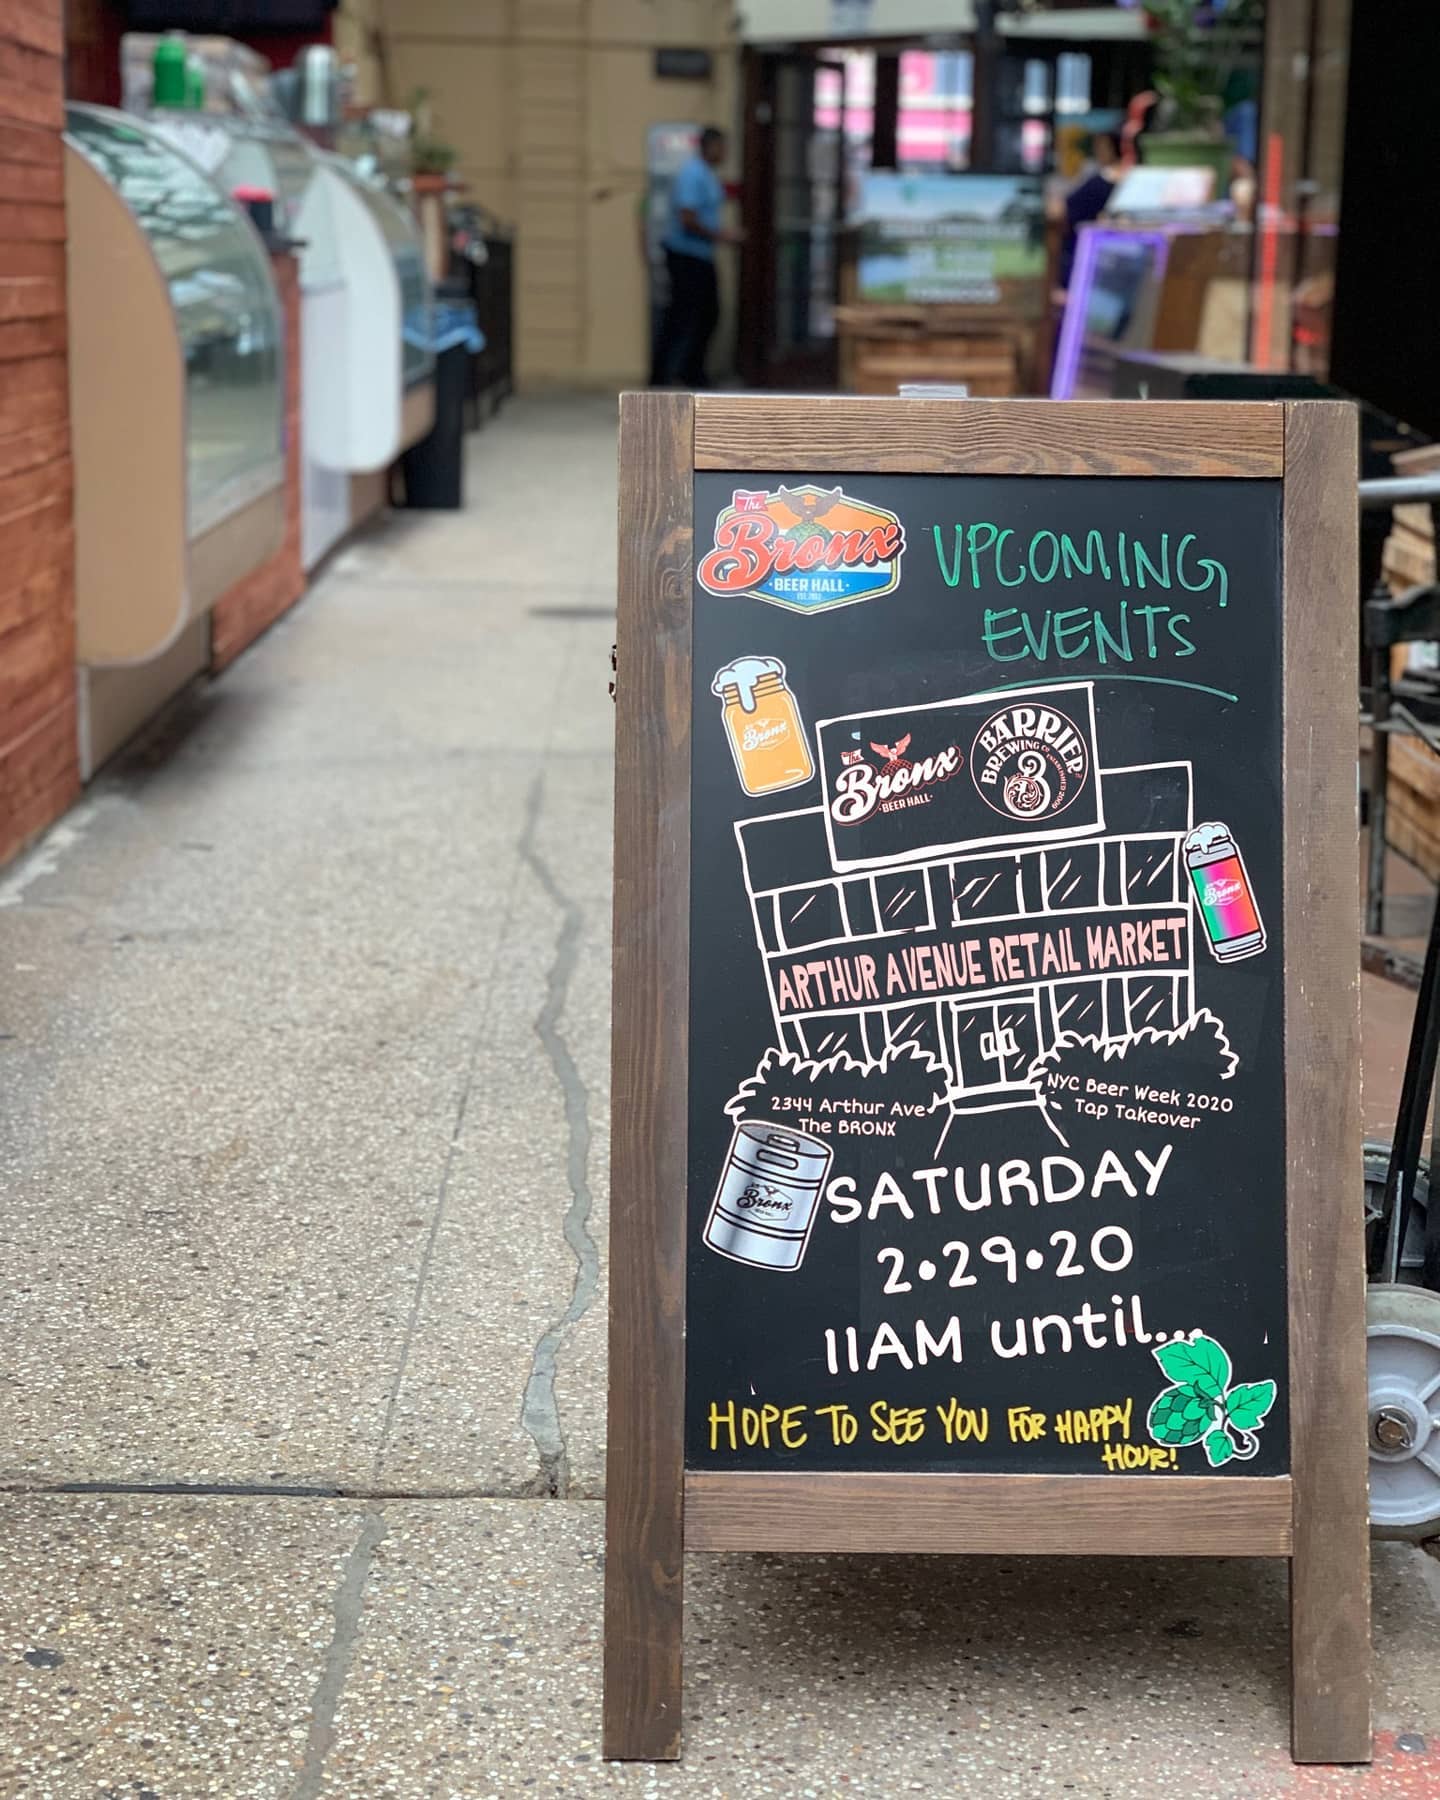 The
Bronx
·BEER HALL·
UPCOMING
EVENTS
Bronx
The
Bronx
·BEER HALL·
BARRIER
BREWING CO
ESTABLISHED 2009
Bronx
ARTHUR AVENUE RETAIL MARKET
2344 Arthur Ave
The BRONX
NYC Beer Week 2020
Tap Takeover
Bronx
SATURDAY
2•29•20
11AM until...
HOPE TO SEE YOU FOR HAPPY
HOUR!